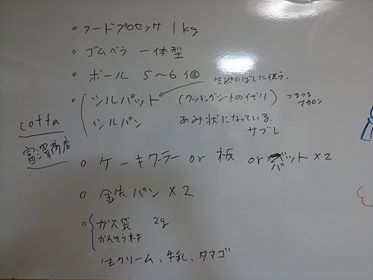 。フードプロセッサ 1kg
。ゴムベラ 一体型
。ボール 5〜6個
生地のばしに使う。
。シルパット (クッキングシートのイボリ) つるつる マカロン
シルパン あみ状になっている サブレ
cotta
富澤商店
。ケーキクーラー or 板 or バット×2
。鉄パン×2
。ガス袋 2g
かんそう材
生クリーム、牛乳、タマゴ